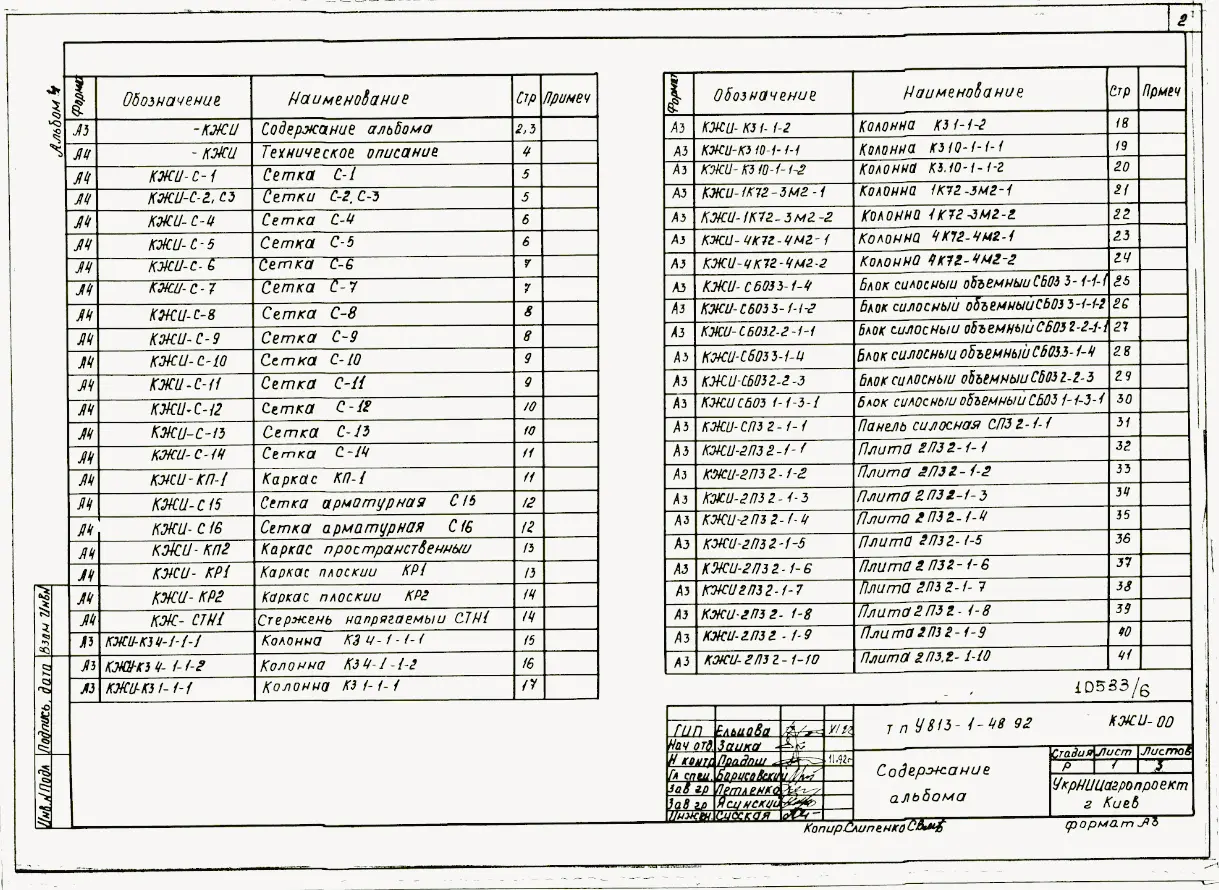 2
Альбом 4
Формат Обозначение Наименование Стр Примеч
А3 -КЖИ Содержание альбома 2,3
А4 -КЖИ Техническое описание 4
А4 КЖИ-С-1 Сетка С-1 5
А4 КЖИ-С-2, С3 Сетки С-2, С-3 5
А4 КЖИ-С-4 Сетка С-4 6
А4 КЖИ-С-5 Сетка С-5 6
А4 КЖИ-С-6 Сетка С-6 7
А4 КЖИ-С-7 Сетка С-7 7
А4 КЖИ-С-8 Сетка С-8 8
А4 КЖИ-С-9 Сетка С-9 8
А4 КЖИ-С-10 Сетка С-10 9
А4 КЖИ-С-11 Сетка С-11 9
А4 КЖИ-С-12 Сетка С-12 10
А4 КЖИ-С-13 Сетка С-13 10
А4 КЖИ-С-14 Сетка С-14 11
А4 КЖИ-КП-1 Каркас КП-1 11
А4 КЖИ-С15 Сетка арматурная С15 12
А4 КЖИ-С16 Сетка арматурная С16 12
А4 КЖИ-КП2 Каркас пространственный 13
А4 КЖИ-КР1 Каркас плоский КР1 13
А4 КЖИ-КР2 Каркас плоский КР2 14
А4 КЖ-СТН1 Стержень напрягаемый СТН1 14
А3 КЖИ-К34-1-1-1 Колонна К34-1-1-1 15
А3 КЖИ-К34-1-1-2 Колонна К34-1-1-2 16
А3 КЖИ-К31-1-1 Колонна К31-1-1 17
Формат Обозначение Наименование Стр Прмеч
А3 КЖИ-К31-1-2 Колонна К31-1-2 18
А3 КЖИ-К310-1-1-1 Колонна К310-1-1-1 19
А3 КЖИ-К310-1-1-2 Колонна К3.10-1-1-2 20
А3 КЖИ-1К72-3М2-1 Колонна 1К72-3М2-1 21
А3 КЖИ-1К72-3М2-2 Колонна 1К72-3М2-2 22
А3 КЖИ-4К72-4М2-1 Колонна 4К72-4М2-1 23
А3 КЖИ-4К72-4М2-2 Колонна 4К72-4М2-2 24
А3 КЖИ-СБ033-1-4 Блок силосный объемный СБ03 3-1-1-1 25
А3 КЖИ-СБ033-1-1-2 Блок силосный объемный СБ03 3-1-1-2 26
А3 КЖИ-СБ032-2-1-1 Блок силосный объемный СБ03 2-2-1-1 27
А3 КЖИ-СБ033-1-4 Блок силосный объемный СБ03.3-1-4 28
А3 КЖИ-СБ032-2-3 Блок силосный объемный СБ03 2-2-3 29
А3 КЖИ СБ03 1-1-3-1 Блок силосный объемный СБ03 1-1-3-1 30
А3 КЖИ-СП3 2-1-1 Панель силосная СП3 2-1-1 31
А3 КЖИ-2П3 2-1-1 Плита 2П32-1-1 32
А3 КЖИ-2П3 2-1-2 Плита 2П32-1-2 33
А3 КЖИ-2П3 2-1-3 Плита 2П32-1-3 34
А3 КЖИ-2П3 2-1-4 Плита 2П32-1-4 35
А3 КЖИ-2П32-1-5 Плита 2П32-1-5 36
А3 КЖИ-2П32-1-6 Плита 2П32-1-6 37
А3 КЖИ 2П32-1-7 Плита 2П32-1-7 38
А3 КЖИ-2П32-1-8 Плита 2П32-1-8 39
А3 КЖИ-2П32-1-9 Плита 2П32-1-9 40
А3 КЖИ-2П32-1-10 Плита 2П3.2-1-10 41
10583/6
Взам ИнвN
Подпись дата
Инв.N Подл
ГИП Ельцова
Нач отд. Заика
Н контр Прадош 11.92г
Гл спец. Борисовский
Зав гр Петленко
Зав гр Ясинский
Инжен Сисская
т п У813-1-48 92 КЖИ-00
Содержание
альбома
Стадия Лист Листов
Р 1 3
УкрНИИагропроект
г Киев
Копир. Слипенко
формат А3